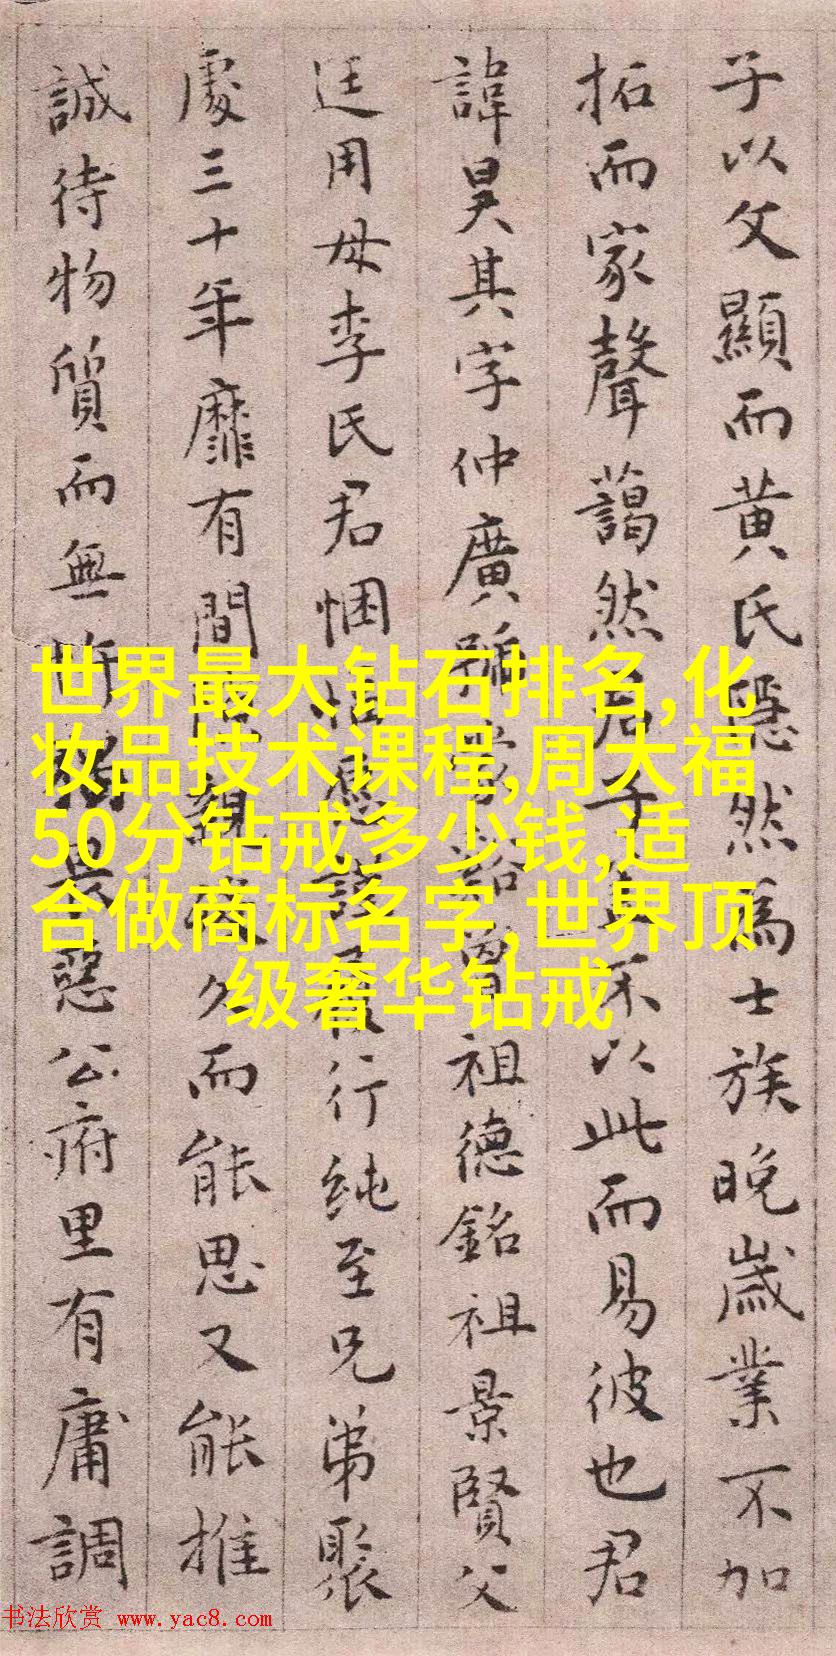 子以父顯而黄氏隱然為士族晚歲業不加
拓而家聲藹然君子不以此而易彼也君
諱昊其字仲廣曾祖德銘祖景賢父
廷用母李氏君悃行純至兄弟聚
處三十年靡有間親久而能思又能推
誠待物質而無惡公府里有庸調
世界最大钻石排名,化
妆品技术课程,周大福
50分钻戒多少钱,适
合做商标名字,世界顶
级奢华钻戒
书法欣赏 www.yac8.com